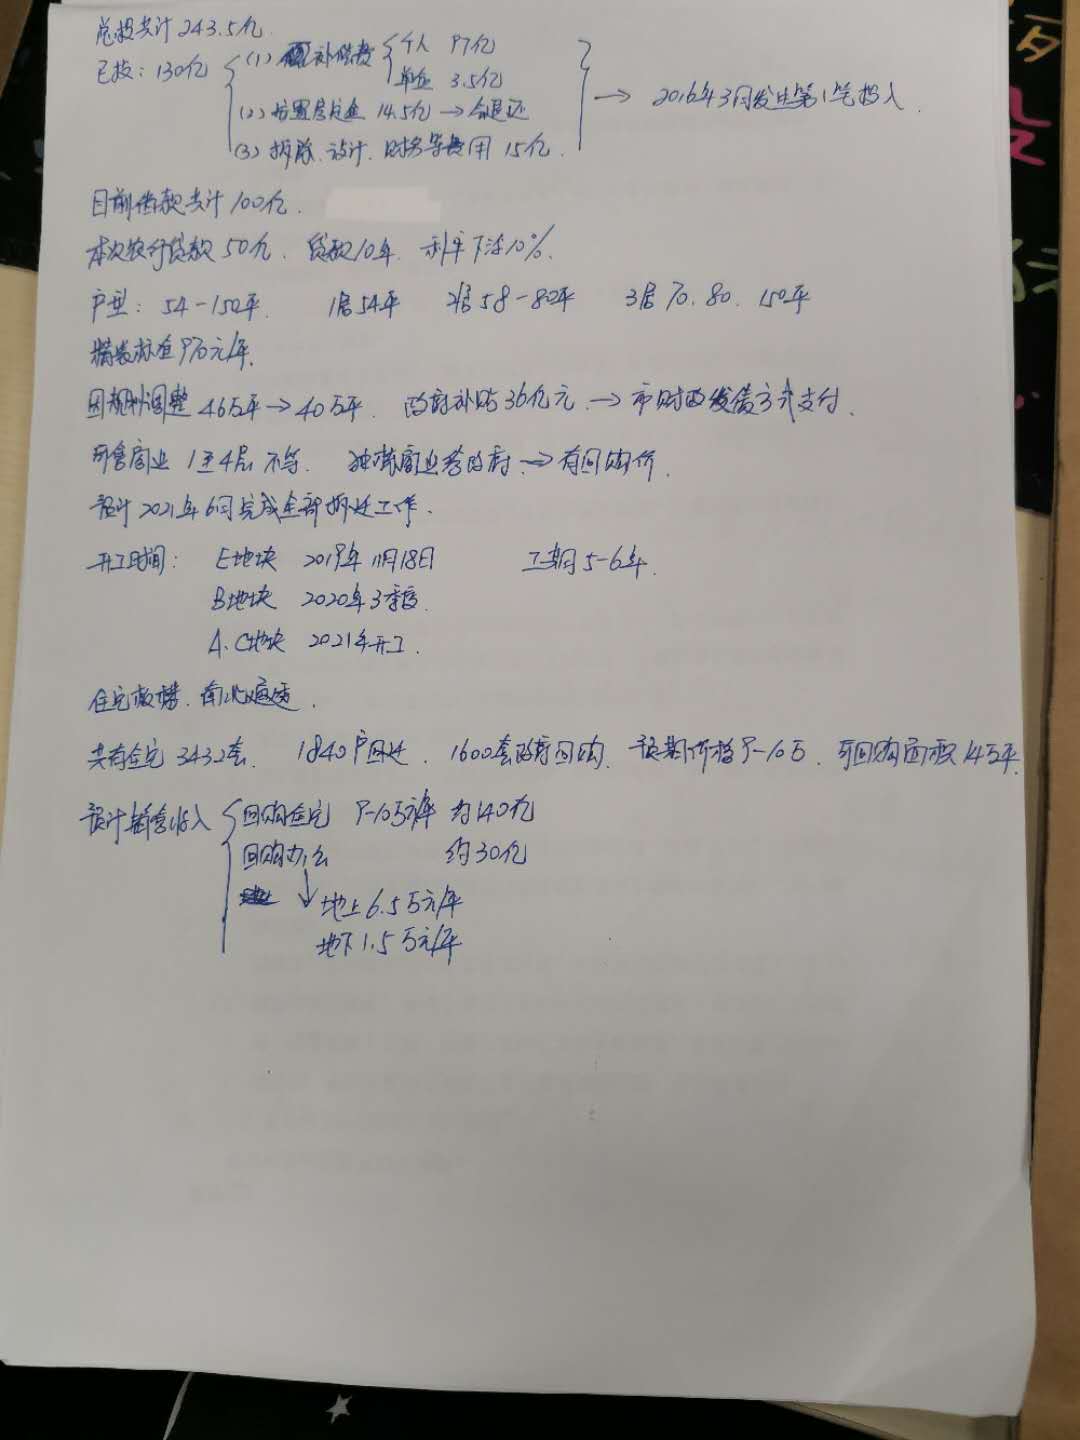 总投共计243.5亿
已投：130亿 (1) 补偿款 个人 97亿
单位 3.5亿
(2) 安置房定金 14.5亿 → 会退还
(3) 拆除、设计、财务等费用 15亿.
→ 2016年3月发生第1笔投入.
目前借款共计100亿.
本次农行贷款50亿、贷款10年. 利率下浮10%.
户型：54-150平. 1居54平 2居58-80平 3居70、80、150平
精装标准970元/平.
因规划调整46万平→40万平. 政府补贴36亿元→市财政发债方式支付.
可售商业1至4层不等. 独栋商业给政府→有回购价.
预计2021年6月完成全部拆迁工作.
开工时间： E地块 2019年11月18日 工期5-6年.
B地块 2020年3季度.
A、C地块 2021年开工.
住宅板楼、南北通透.
共有住宅3432套. 1840户回迁. 1600套政府回购. 预期价格9-10万. 可回购面积14万平.
预计销售收入 回购住宅 9-10万元/平 约140亿
回购办公 约30亿
↓ 地上6.5万元/平
地下1.5万元/平